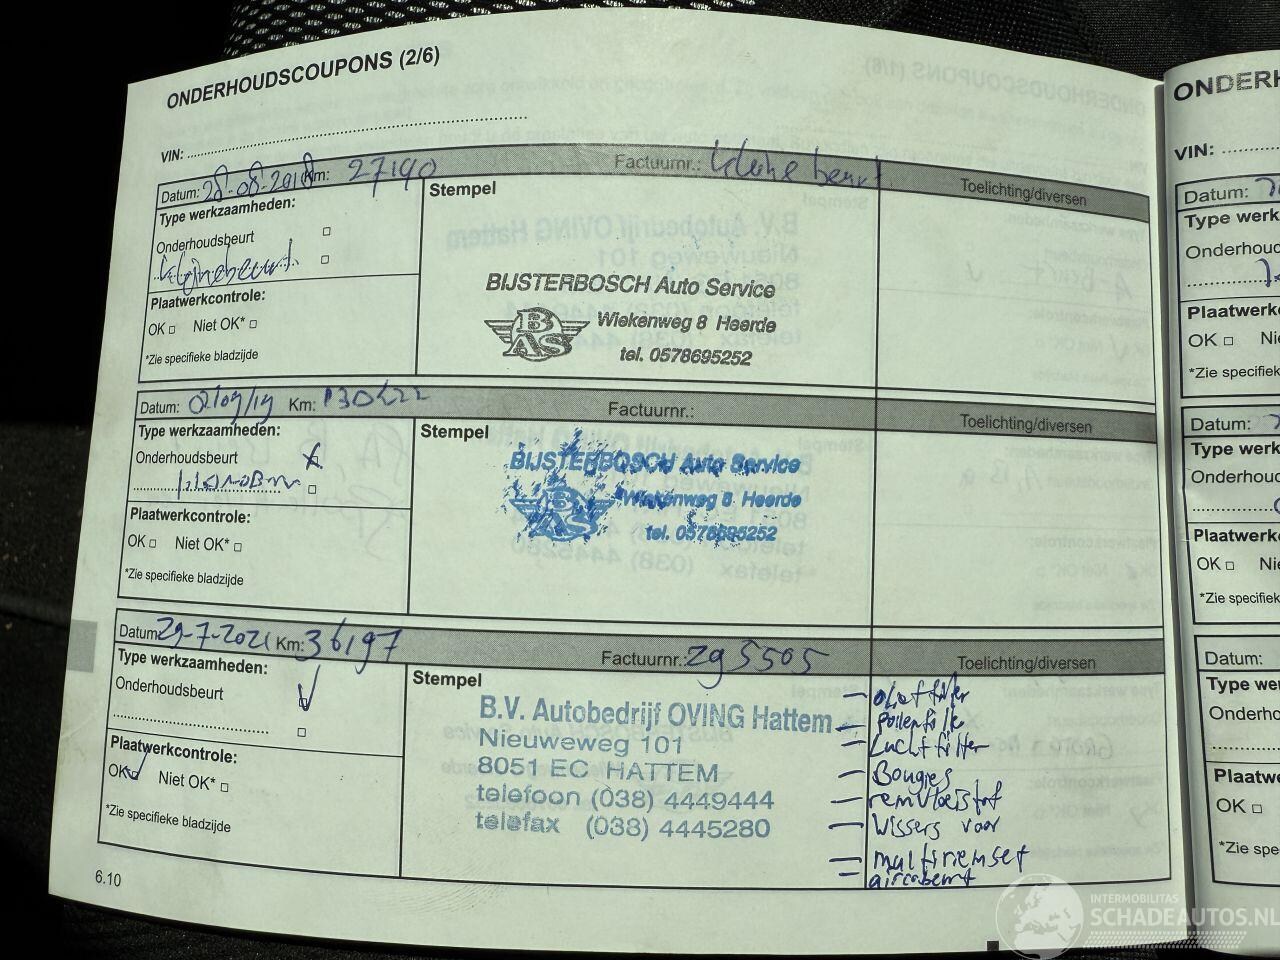 ONDERHOUDSCOUPONS (2/6)
VIN:
Datum: 28-08-2018 Km: 27190 Factuurnr.: kleine beurt Toelichting/diversen
Type werkzaamheden:
Stempel
Onderhoudsbeurt
kleinebeurt
Plaatwerkcontrole:
OK Niet OK*
*Zie specifieke bladzijde
BIJSTERBOSCH Auto Service
BAS
Wiekenweg 8 Heerde
tel. 0578695252
Datum: Km: Factuurnr.: Toelichting/diversen
Type werkzaamheden:
Stempel
Onderhoudsbeurt
Plaatwerkcontrole:
OK Niet OK*
*Zie specifieke bladzijde
BIJSTERBOSCH Auto Service
BAS
Wiekenweg 8 Heerde
tel. 0578695252
Datum: 29-7-2021 Km: 36197 Factuurnr.: 295505 Toelichting/diversen
Type werkzaamheden:
Stempel
Onderhoudsbeurt
Plaatwerkcontrole:
OK Niet OK*
*Zie specifieke bladzijde
B.V. Autobedrijf OVING Hattem
Nieuweweg 101
8051 EC HATTEM
telefoon (038) 4449444
telefax (038) 4445280
- pollenfilter
- Luchtfilter
- Bougies
- remvloeistof
- wissers voor
- multiriemset
- aircobeurt
6.10
ONDERH
VIN:
Datum:
Type werkza
Onderhoudsb
Plaatwerkco
OK Nie
*Zie specifieke
Datum:
Type werkz
Onderhoud
Plaatwerkc
OK Nie
*Zie specifiek
Datum:
Type wer
Onderho
Plaatwe
OK
*Zie spe
INTERMOBILITAS
SCHADEAUTOS.NL